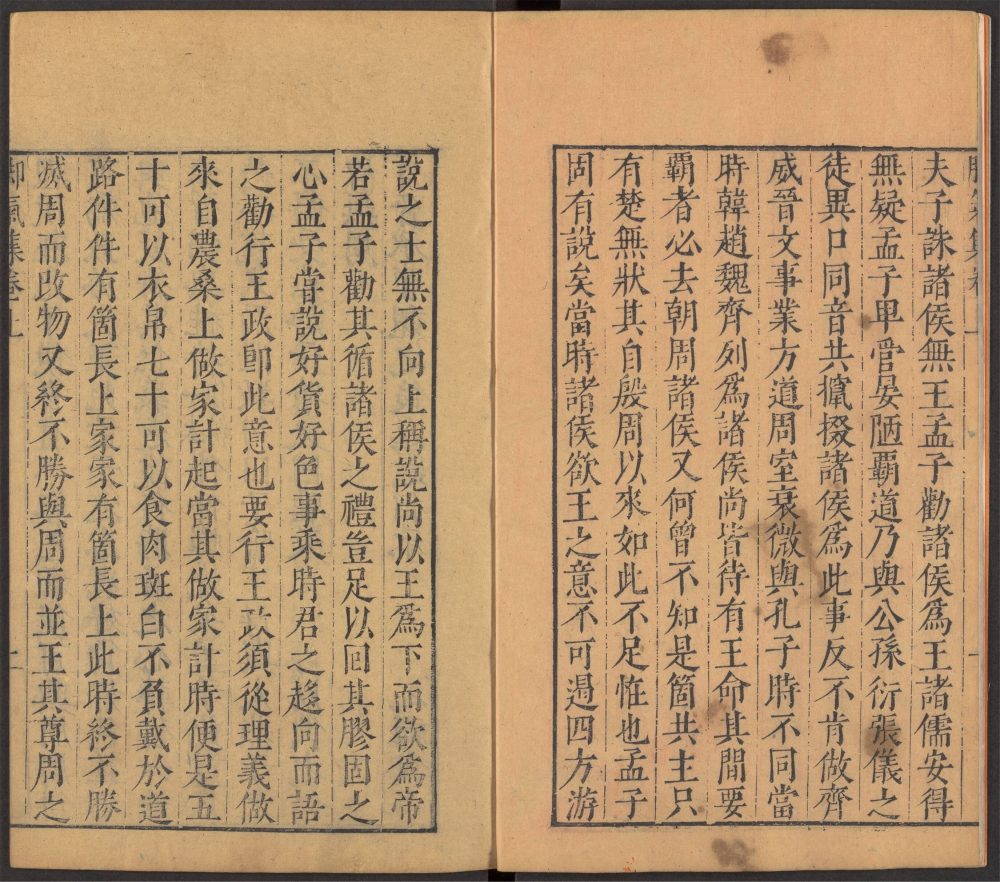 夫子誅諸侯無王孟子勸諸侯爲王諸儒安得
無疑孟子卑管晏陋覇道乃與公孫衍張儀之
徒異口同音共攛掇諸侯爲此事反不肯做齊
威晉文事業方道周室衰微與孔子時不同當
時韓趙魏齊列爲諸侯尚皆待有王命其間要
覇者必去朝周諸侯又何曾不知是箇共主只
有楚無狀其自殷周以來如此不足怪也孟子
固有說矣當時諸侯欲王之意不可遏四方游
說之士無不向上稱說尚以王爲下而欲爲帝
若孟子勸其循諸侯之禮豈足以回其膠固之
心孟子嘗說好貨好色事乘時君之趍向而語
之勸行王政卽此意也要行王政須從理義做
來自農桑上做家計起當其做家計時便是五
十可以衣帛七十可以食肉斑白不負戴於道
路件件有箇長上家家有箇長上此時終不勝
滅周而改物又終不勝與周而並王其尊周之
脚氣集卷上 二